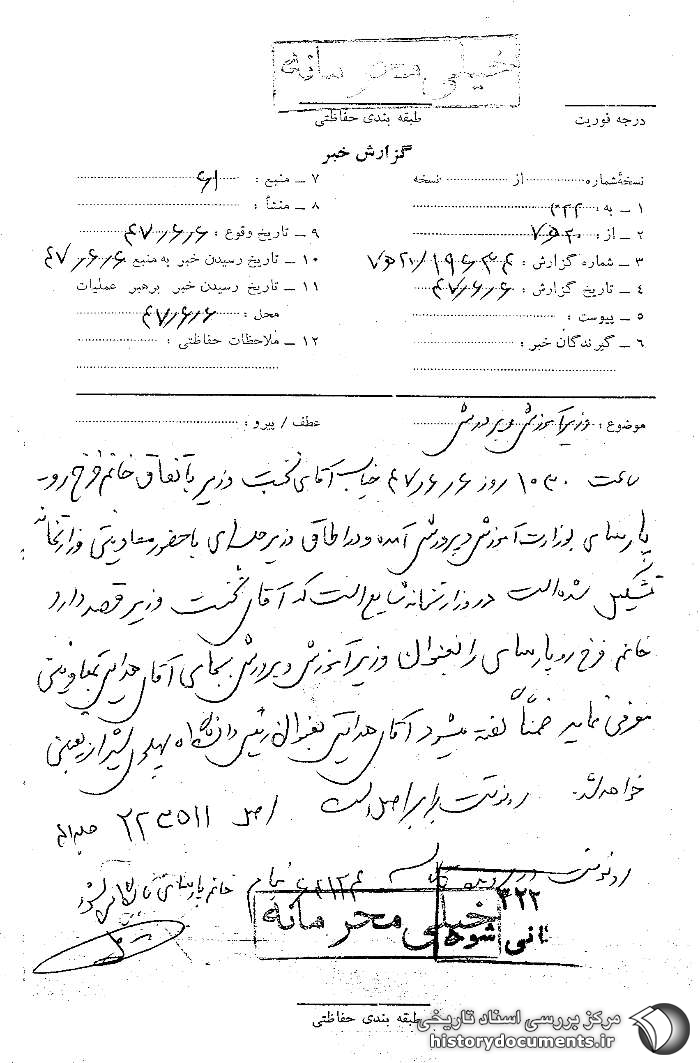 خیلی محرمانه
طبقه بندی حفاظتی
درجه فوریت
گزارش خبر
نسخهٔ شماره ........ از ........ نسخه
۱ ـ به : ۳۲۲
۲ ـ از : ۲۰ ه ۷
۳ ـ شماره گزارش :
۴ ـ تاریخ گزارش : ۴۷٫۶٫۶
۵ ـ پیوست :
۶ ـ گیرندگان خبر :
۷ ـ منبع :
۸ ـ منشأ :
۹ ـ تاریخ وقوع : ۴۷٫۶٫۶
۱۰ ـ تاریخ رسیدن خبر به منبع ۴۷٫۶٫۶
۱۱ ـ تاریخ رسیدن خبر برهبر عملیات
محل : ۴۷٫۶٫۶
۱۲ ـ ملاحظات حفاظتی :
موضوع : وزیر آموزش و پرورش
عطف / پیرو :
ساعت ۱۰۳۰ روز ۴۷٫۶٫۶ جناب آقای نخست وزیر باتفاق خانم فرخ رو ـ
پارسای بوزارت آموزش و پرورش آمده و در اطاق وزیر جلسه‌ای با حضور معاونین وزارتخانه
تشکیل شده است در وزارتخانه شایع است که آقای نخست وزیر قصد دارد
خانم فرخ رو پارسای را بعنوان وزیر آموزش و پرورش بجای آقای هدایتی بمعاونین
معرفی نماید ضمناً گفته میشود آقای هدایتی بعنوان رئیس دانشگاه پهلوی شیراز تعیین
خواهد شد. رونوشت برابر اصل است اصل ۲۲۳۵۱۱
رونوشت در پرونده خانم پارسای بایگانی شود
۳۲۲
خیلی محرمانه
طبقه بندی حفاظتی
مرکز بررسی اسناد تاریخی
historydocuments.ir